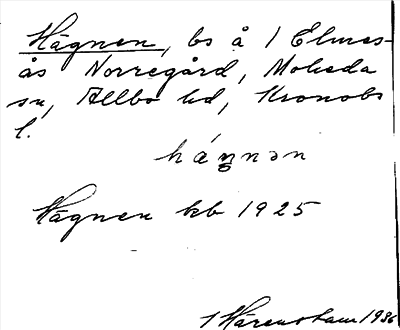 Hägnen, bs å 1 Elmes-
ås Norregård, Moheda
sn, Allbo hd, Kronobs
l.
hä́ŋnən
Hägnen kb 1925
1936